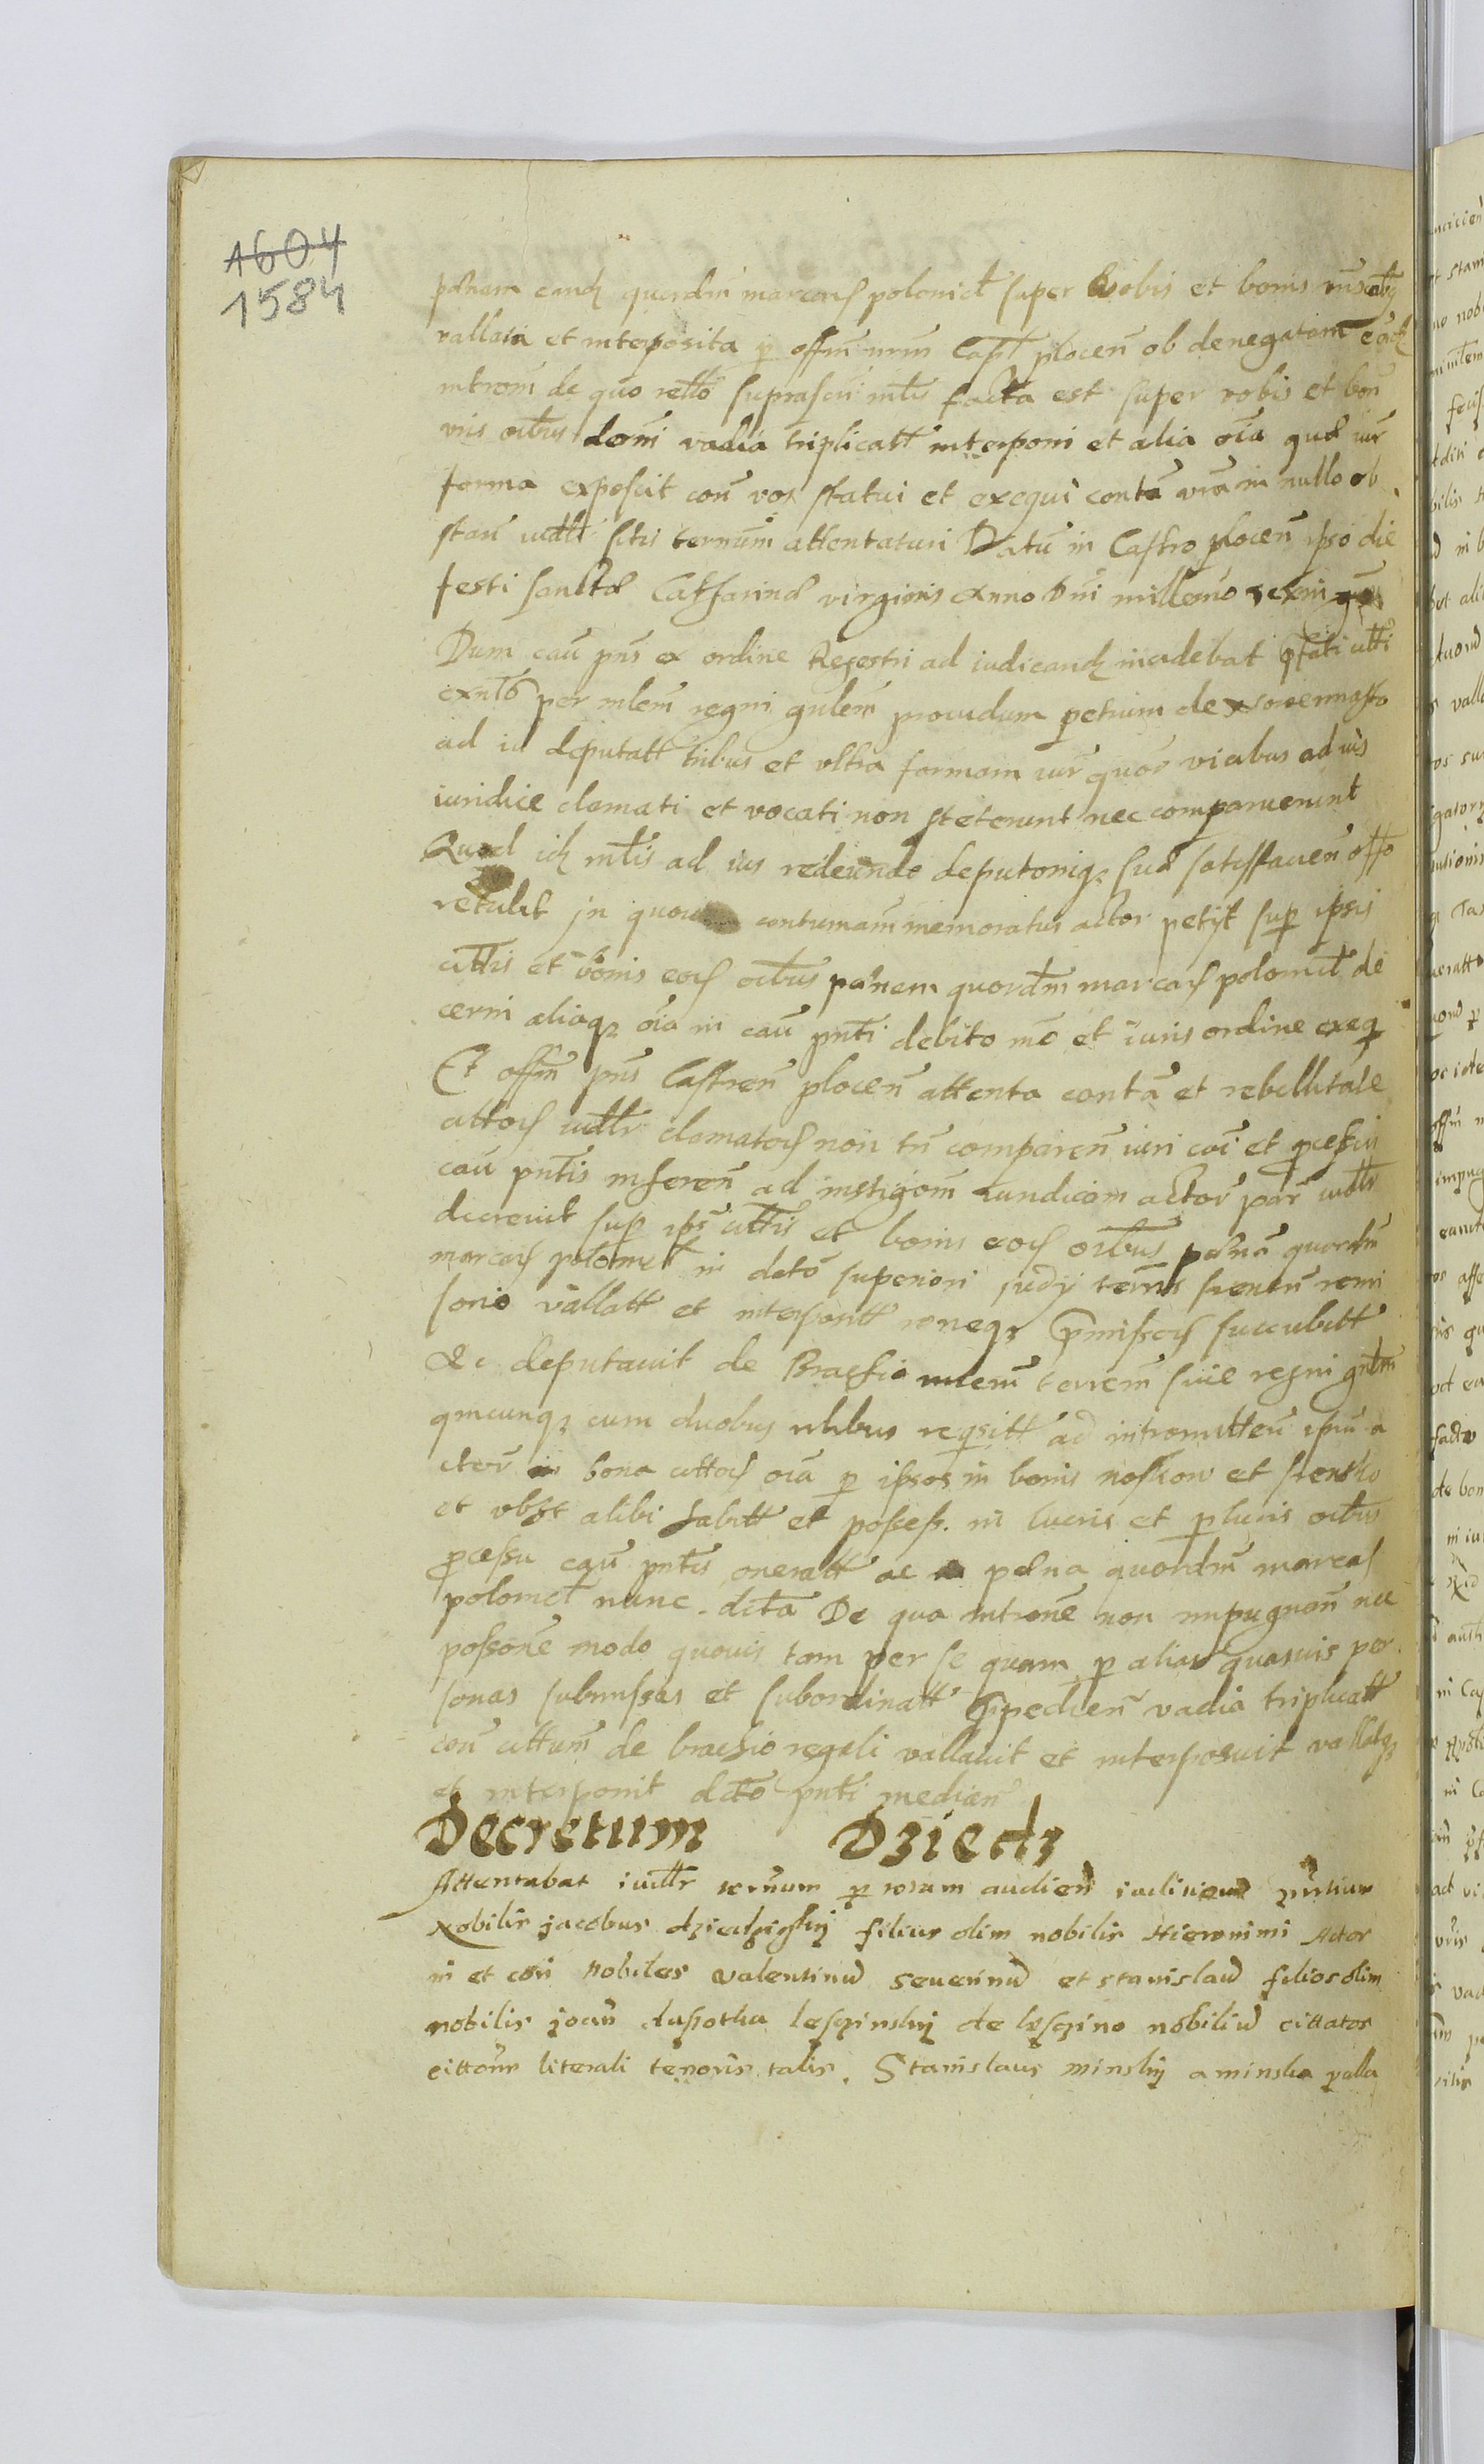 1604
1584
pænam eandꝫ quordm marcarꝭ polonicl super Vobis et bonis vris oibꝫ
vallata et interposita p offm nrm Capl plocen ob denegatam eandꝫ
introm de quo rello suprascri mtis facta est super vobis et bon
vris oibus domi vadia triplicatt interponi et alia oia quæ iur
forma exposcit con vos statui et exequi conta vra in nullo ob
stan iudlr sitis ternum attentaturi Datu in Castro plocen ipso die
festi sanctæ Catharinæ virginis Anno Dni millemo
Dum cau pns ex ordine Regestri ad iudicandꝫ incidebat pfati citti
extto per mlem regni gnlem providum petrum de
ad id deputatt tribus et ultra formam iur quor viabus ad ius
iuridice clamati et vocati non steterunt nec comparuerunt
Quod idꝫ mtis ad ius redeundo deputoniqꝫ suæ satisffacien offo
retulit in quorum contumam memoratus actor petyt sup ipsis
cittis et bonis eorꝭ oibus pænam quordm marcarꝭ polonicl de
cerni aliaqꝫ oia in cau pnti debito mo et iuris ordine exeq
Et offm pns Castren plocen attenta conta et rebellitate
cittorꝭ iudlr clamatorꝭ non tn comparen iuri coi et pcessui
cau pntis inferen ad instigom iuridicam actor par iudlr
decrevit sup ips cittis et bonis eorꝭ oibus pænam quordm
marcarꝭ polonicl in dcto superiori judy termis
sorio vallatt et interpositt roneqꝫ pmissorꝭ succubitt
Ac deputavit de Brachio mlem terrem sive regni gnlem
qmcunqꝫ cum duobus nlibus reqsitt ad intromitten ipsu a
ctor in bona cittorꝭ oia p ipsos in bonis et
et ubst alibi habitt et possess. in lucris et plucris oibus
pcessu cau pntis oneratt ac pæna quordm marcarꝭ
polonicl nunc dcta De qua introne non impugnan nec
possone modo quovis tam per se quam p alias quasvis per
sonas submissas et subordinatt Ipedien vadia triplicatt
con cittum de brachio regali vallavit et interposuit vallatqꝫ
et interponit dcto pnti median
Decretum Dziedz
Attentabat iudlr ternum p totam audien iudicium pntium
Nobilis jacobus dziedzičzkij filius olim nobilis Hieronimi Actor
in et con nobiles valentinu severinu et stanislau filios olim
nobilis joan dusotha lesczinskij de lesczino nobiliu cittatos
cittonis literali tenoris talis. Stanislaus minskij a minsko palla